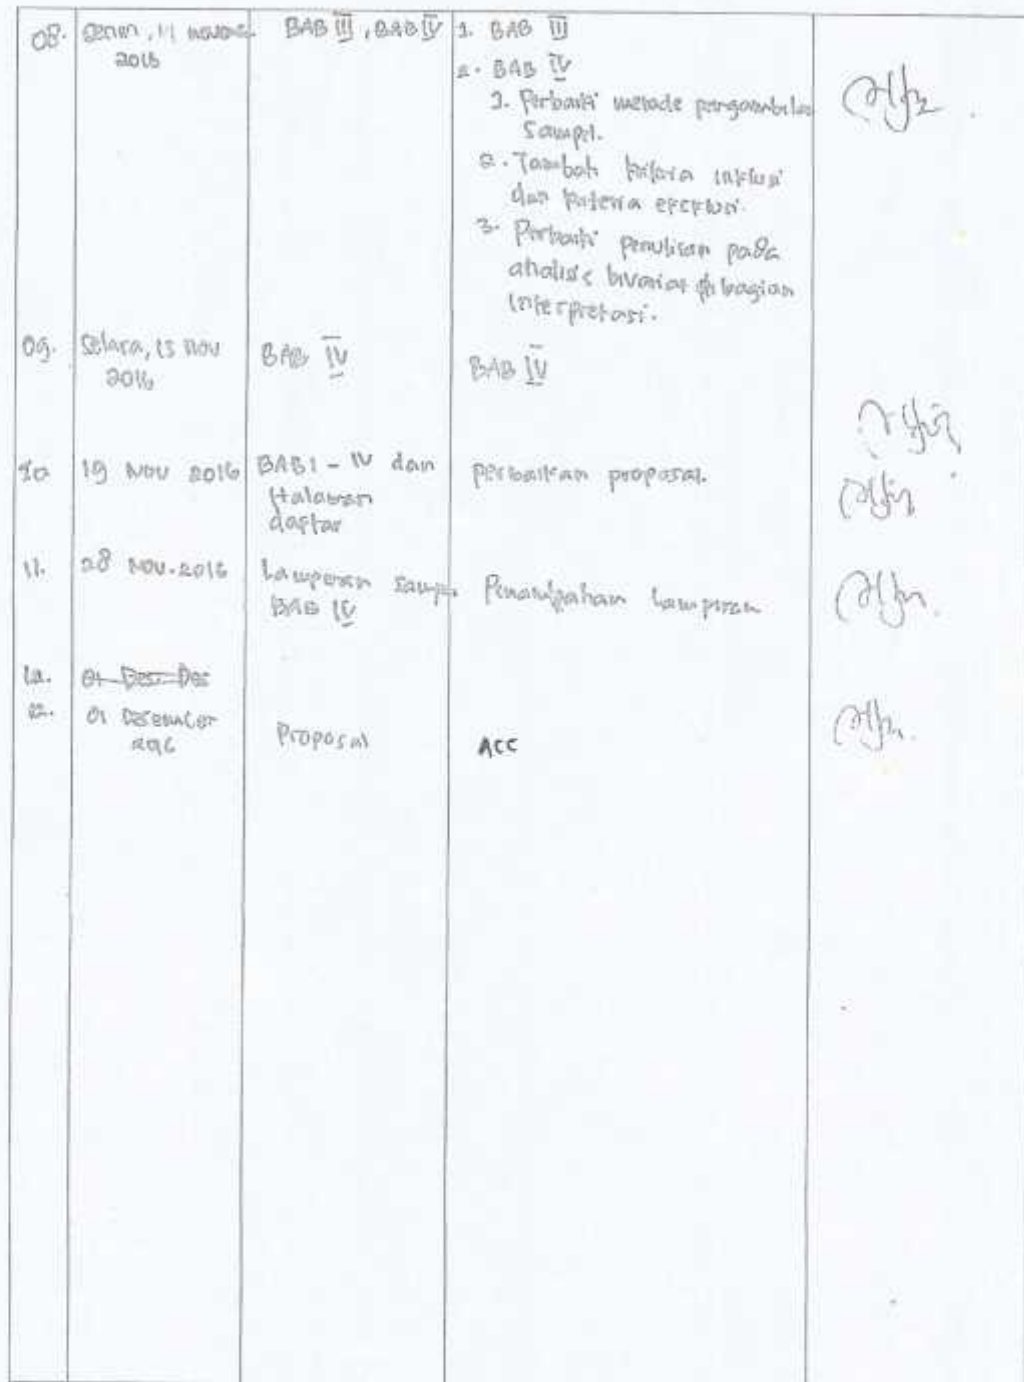 08. Senin, 14 novem
2016
BAB III, BAB IV
1. BAB III
2. BAB IV
1. Perbaiki metode pengambilan
Sampel.
2. Tambah kriteria inklusi
dan kriteria eksklusi.
3. Perbaiki penulisan pada
analisis bivariat di bagian
interpretasi.
09. Selasa, 15 nov
2016
BAB IV
BAB IV
10 19 Nov 2016
BAB I - IV dan
Halaman
daftar
perbaikan proposal.
11. 28 Nov. 2016
Lampiran samp
BAB IV
Penambahan Lampiran
12. 01 Des Des
12. 01 Desember
2016
Proposal
ACC